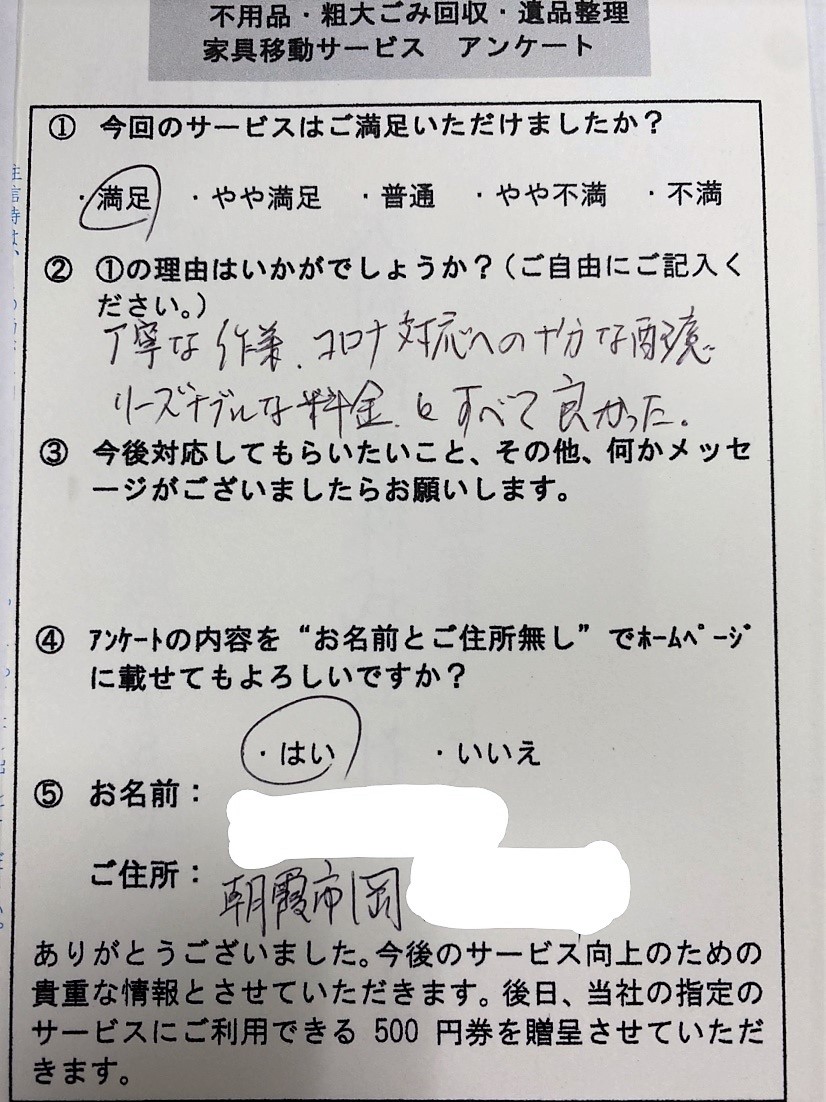 不用品・粗大ごみ回収・遺品整理
家具移動サービス アンケート
① 今回のサービスはご満足いただけましたか?
・満足 ・やや満足 ・普通 ・やや不満 ・不満
② ①の理由はいかがでしょうか?(ご自由にご記入く
ださい。)
丁寧な作業、コロナ対応への十分な配慮
リーズナブルな料金、とすべて良かった。
③ 今後対応してもらいたいこと、その他、何かメッセ
ージがございましたらお願いします。
④ ｱﾝｹｰﾄの内容を“お名前とご住所無し”でﾎｰﾑﾍﾟｰｼﾞ
に載せてもよろしいですか?
・はい ・いいえ
⑤ お名前:
ご住所: 朝霞市岡
ありがとうございました。今後のサービス向上のための
貴重な情報とさせていただきます。後日、当社の指定の
サービスにご利用できる 500 円券を贈呈させていただ
きます。